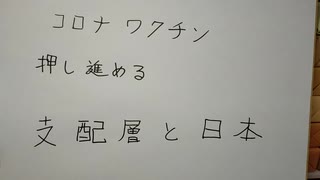 コロナワクチン
押し進める
支配層と日本